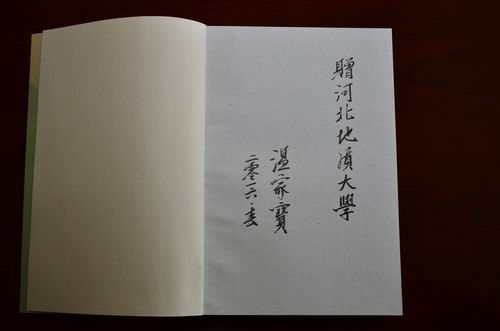 贈河北地質大學
温家寶
二零一六·春